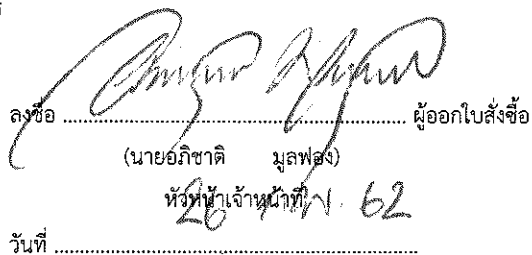 ลงชื่อ ........................................ ผู้ออกใบสั่งซื้อ
(นายอภิชาติ มูลฟอง)
หัวหน้าเจ้าหน้าที่
26 ก.พ. 62
วันที่ ........................................